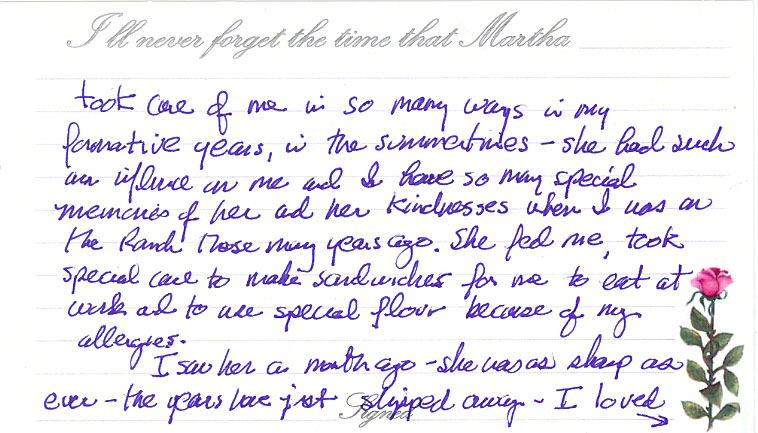 I'll never forget the time that Martha
took care of me in so many ways in my
formative years, in the summertimes - she had such
an influence on me and I have so many special
memories of her and her kindnesses when I was on
the Ranch those many years ago. She fed me, took
special care to make sandwiches for me to eat at
work and to use special flour because of my
allergies.
I saw her a month ago - she was as sharp as
ever - the years have just slipped away - I loved →
Signed